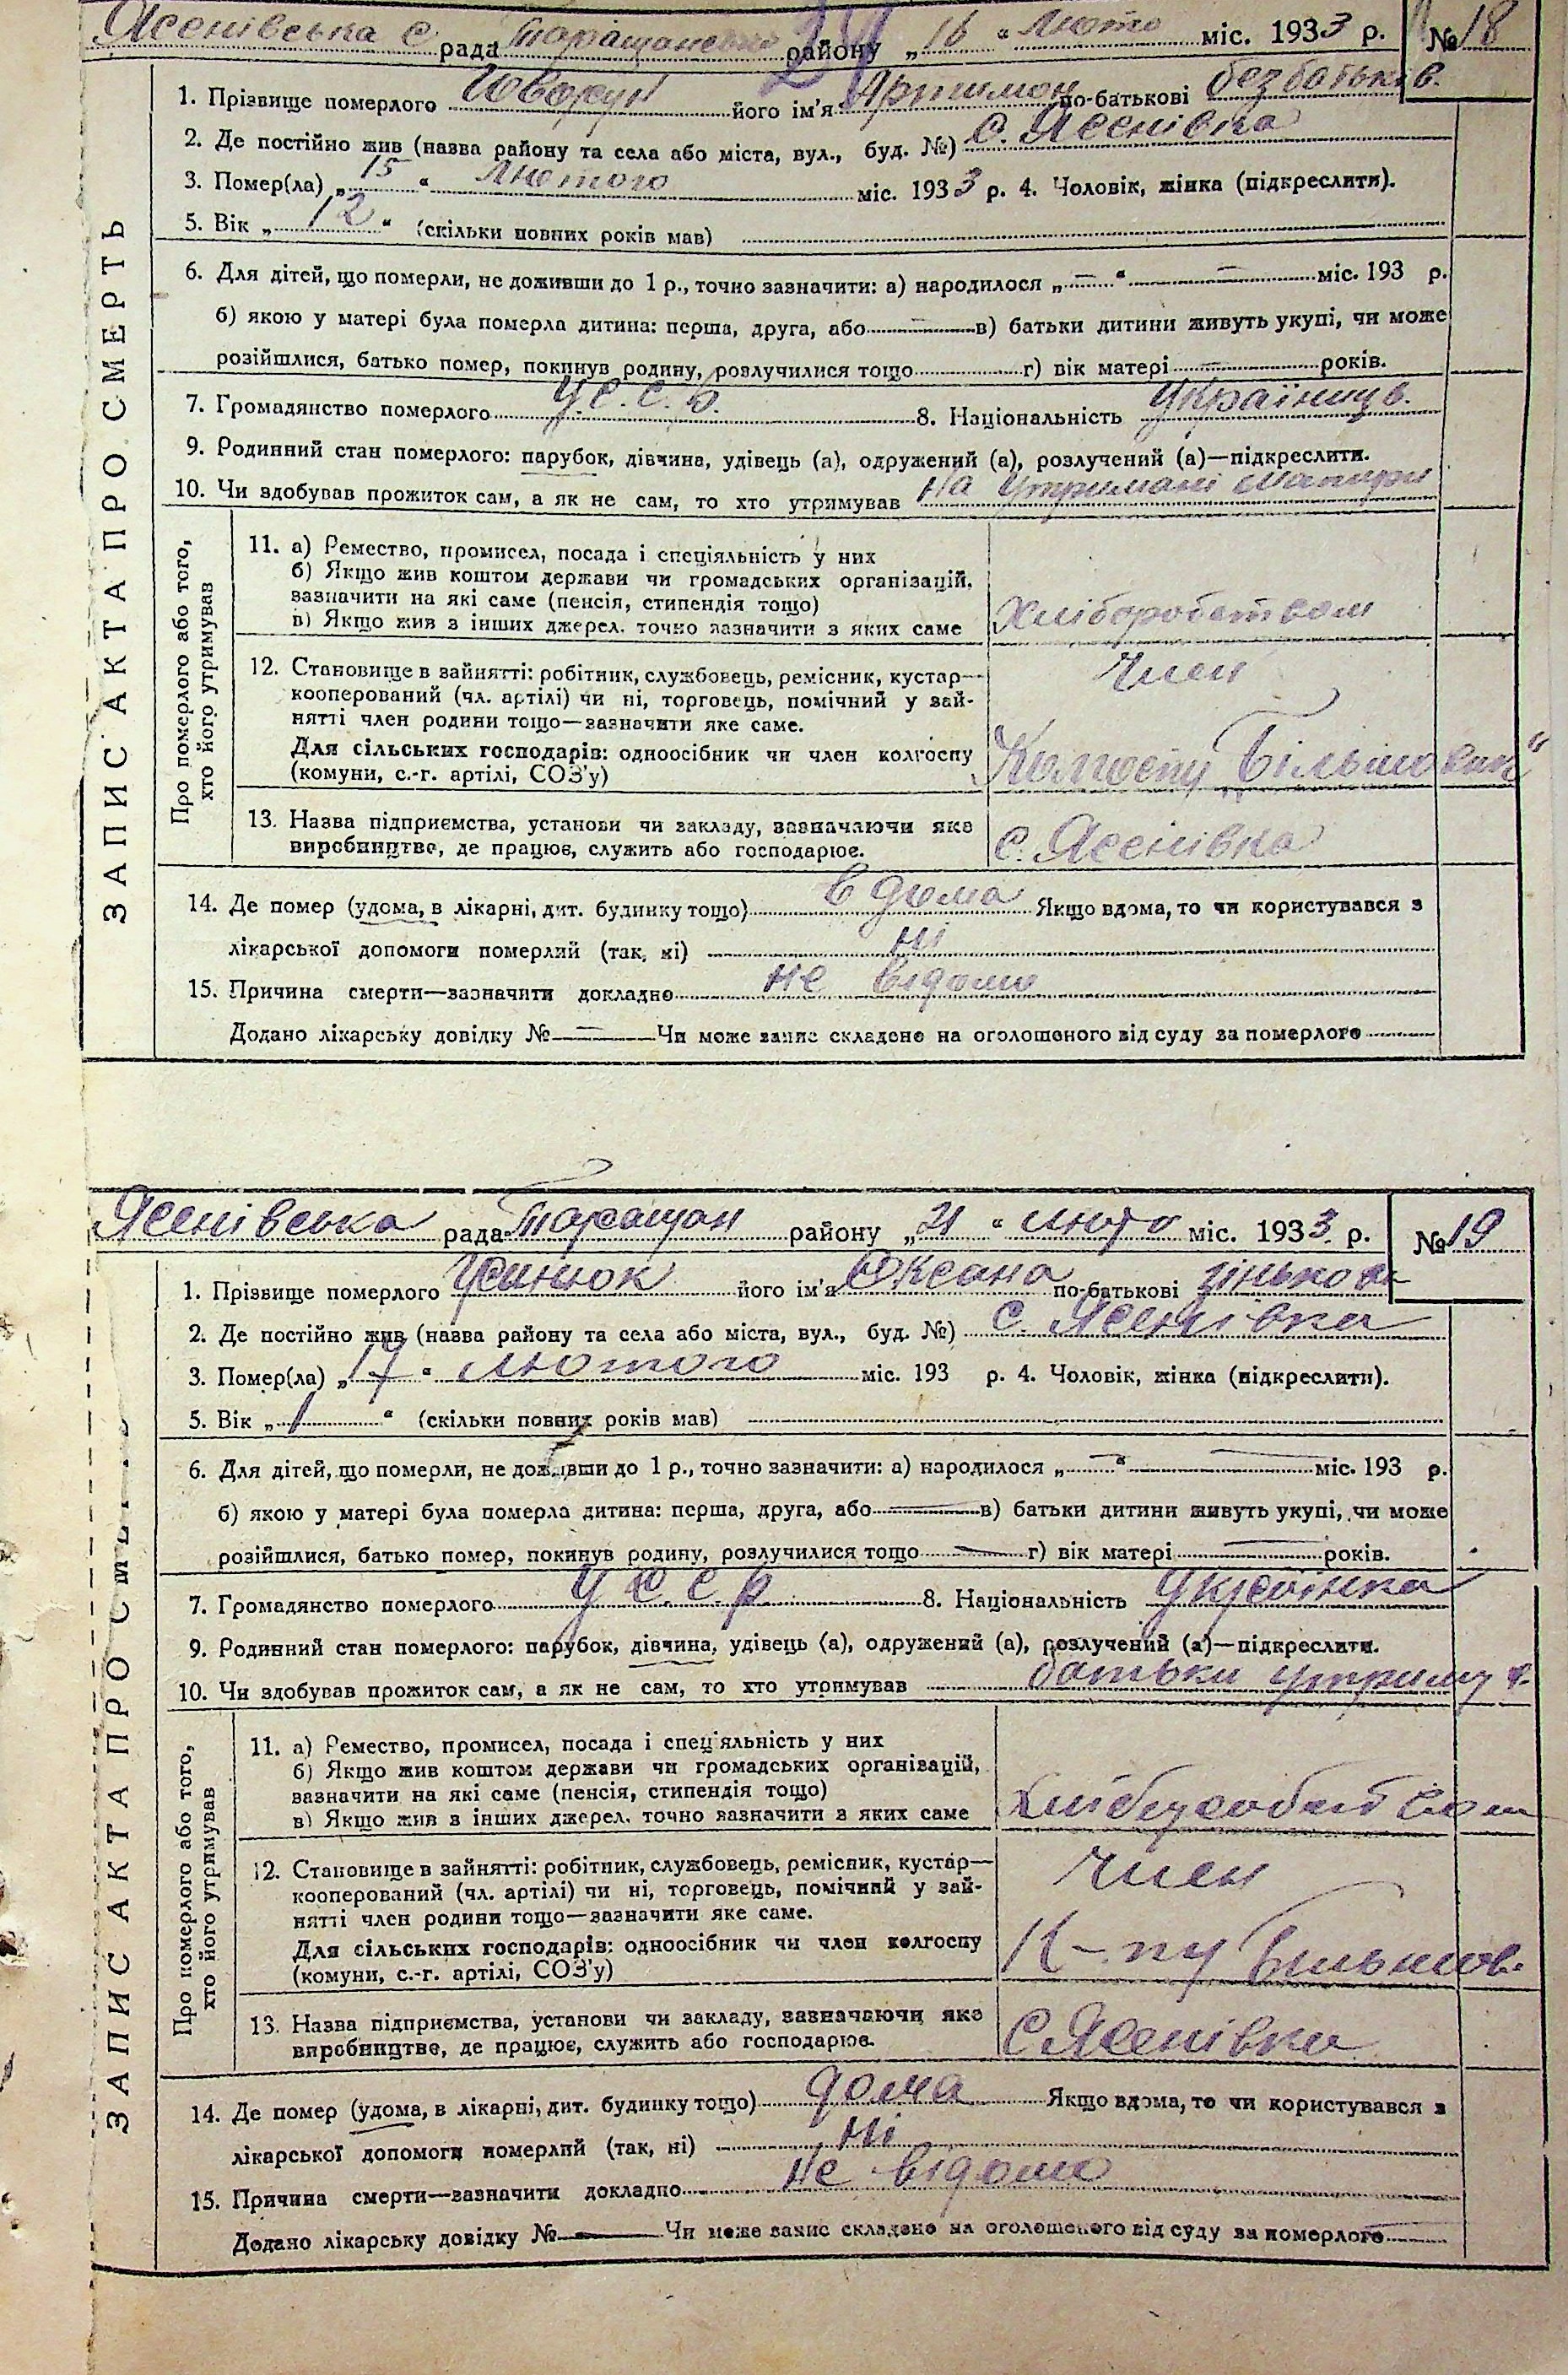 Ясенівська с рада Таращанськ району „16“ Люто міс. 1933 р. № 18
1. Прізвище померлого його ім'я Артимон по-батькові без батьків.
2. Де постійно жив (назва району та села або міста, вул., буд. №) с. Ясенівка
3. Помер(ла) „15“ Лютого міс. 1933 р. 4. Чоловік, жінка (підкреслити).
5. Вік „12“ (скільки повних років мав)
6. Для дітей, що померли, не доживши до 1 р., точно зазначити: а) народилося „—“ — міс. 193 р.
б) якою у матері була померла дитина: перша, друга, або — в) батьки дитини живуть укупі, чи може
розійшлися, батько помер, покинув родину, розлучилися тощо г) вік матері — років.
7. Громадянство померлого У.С.С.Р. 8. Національність Українець.
9. Родинний стан померлого: парубок, дівчина, удівець (а), одружений (а), розлучений (а)—підкреслити.
10. Чи здобував прожиток сам, а як не сам, то хто утримував на утримані матири
ЗАПИС АКТА ПРО СМЕРТЬ
Про померлого або того,
хто його утримував
11. а) Ремество, промисел, посада і спеціяльність у них
б) Якщо жив коштом держави чи громадських організацій,
зазначити на які саме (пенсія, стипендія тощо)
в) Якщо жив з інших джерел, точно зазначити з яких саме Хліборобством
12. Становище в зайнятті: робітник, службовець, ремісник, кустар— член
кооперований (чл. артілі) чи ні, торговець, помічний у зай-
нятті член родини тощо—зазначити яке саме.
Для сільських господарів: одноосібник чи член колгоспу Колгоспу „Більшовик“
(комуни, с.-г. артілі, СОЗ'у)
13. Назва підприємства, установи чи закладу, зазначаючи яке
виробництво, де працює, служить або господарює. с. Ясенівка
14. Де помер (удома, в лікарні, дит. будинку тощо) в дома Якщо вдома, то чи користувався з
лікарської допомоги померлий (так, ні) ні
15. Причина смерти—зазначити докладно не відомо
Додано лікарську довідку № — Чи може запис складено на оголошеного від суду за померлого
Ясенівська рада Таращан району „21“ люто міс. 1933 р. № 19
1. Прізвище померлого Усинюк його ім'я Оксана по-батькові Зіньков
2. Де постійно жив (назва району та села або міста, вул., буд. №) с. Ясенівка
3. Помер(ла) „19“ лютого міс. 193 р. 4. Чоловік, жінка (підкреслити).
5. Вік „1“ (скільки повних років мав)
6. Для дітей, що померли, не доживши до 1 р., точно зазначити: а) народилося „—“ — міс. 193 р.
б) якою у матері була померла дитина: перша, друга, або — в) батьки дитини живуть укупі, чи може
розійшлися, батько помер, покинув родину, розлучилися тощо — г) вік матері — років.
7. Громадянство померлого У.С.С.Р 8. Національність Українка
9. Родинний стан померлого: парубок, дівчина, удівець (а), одружений (а), розлучений (а)—підкреслити.
10. Чи здобував прожиток сам, а як не сам, то хто утримував батьки утриму
ЗАПИС АКТА ПРО СМЕ
Про померлого або того,
хто його утримував
11. а) Ремество, промисел, посада і спеціяльність у них
б) Якщо жив коштом держави чи громадських організацій,
зазначити на які саме (пенсія, стипендія тощо)
в) Якщо жив з інших джерел, точно зазначити з яких саме Хліборобством
12. Становище в зайнятті: робітник, службовець, ремісник, кустар— член
кооперований (чл. артілі) чи ні, торговець, помічний у зай-
нятті член родини тощо—зазначити яке саме.
Для сільських господарів: одноосібник чи член колгоспу К-пу Більшов.
(комуни, с.-г. артілі, СОЗ'у)
13. Назва підприємства, установи чи закладу, зазначаючи яке
виробництво, де працює, служить або господарює. С Ясенівка
14. Де помер (удома, в лікарні, дит. будинку тощо) дома Якщо вдома, то чи користувався з
лікарської допомоги померлий (так, ні) Ні
15. Причина смерти—зазначити докладно не відомо
Додано лікарську довідку № — Чи може запис складено на оголошеного від суду за померлого